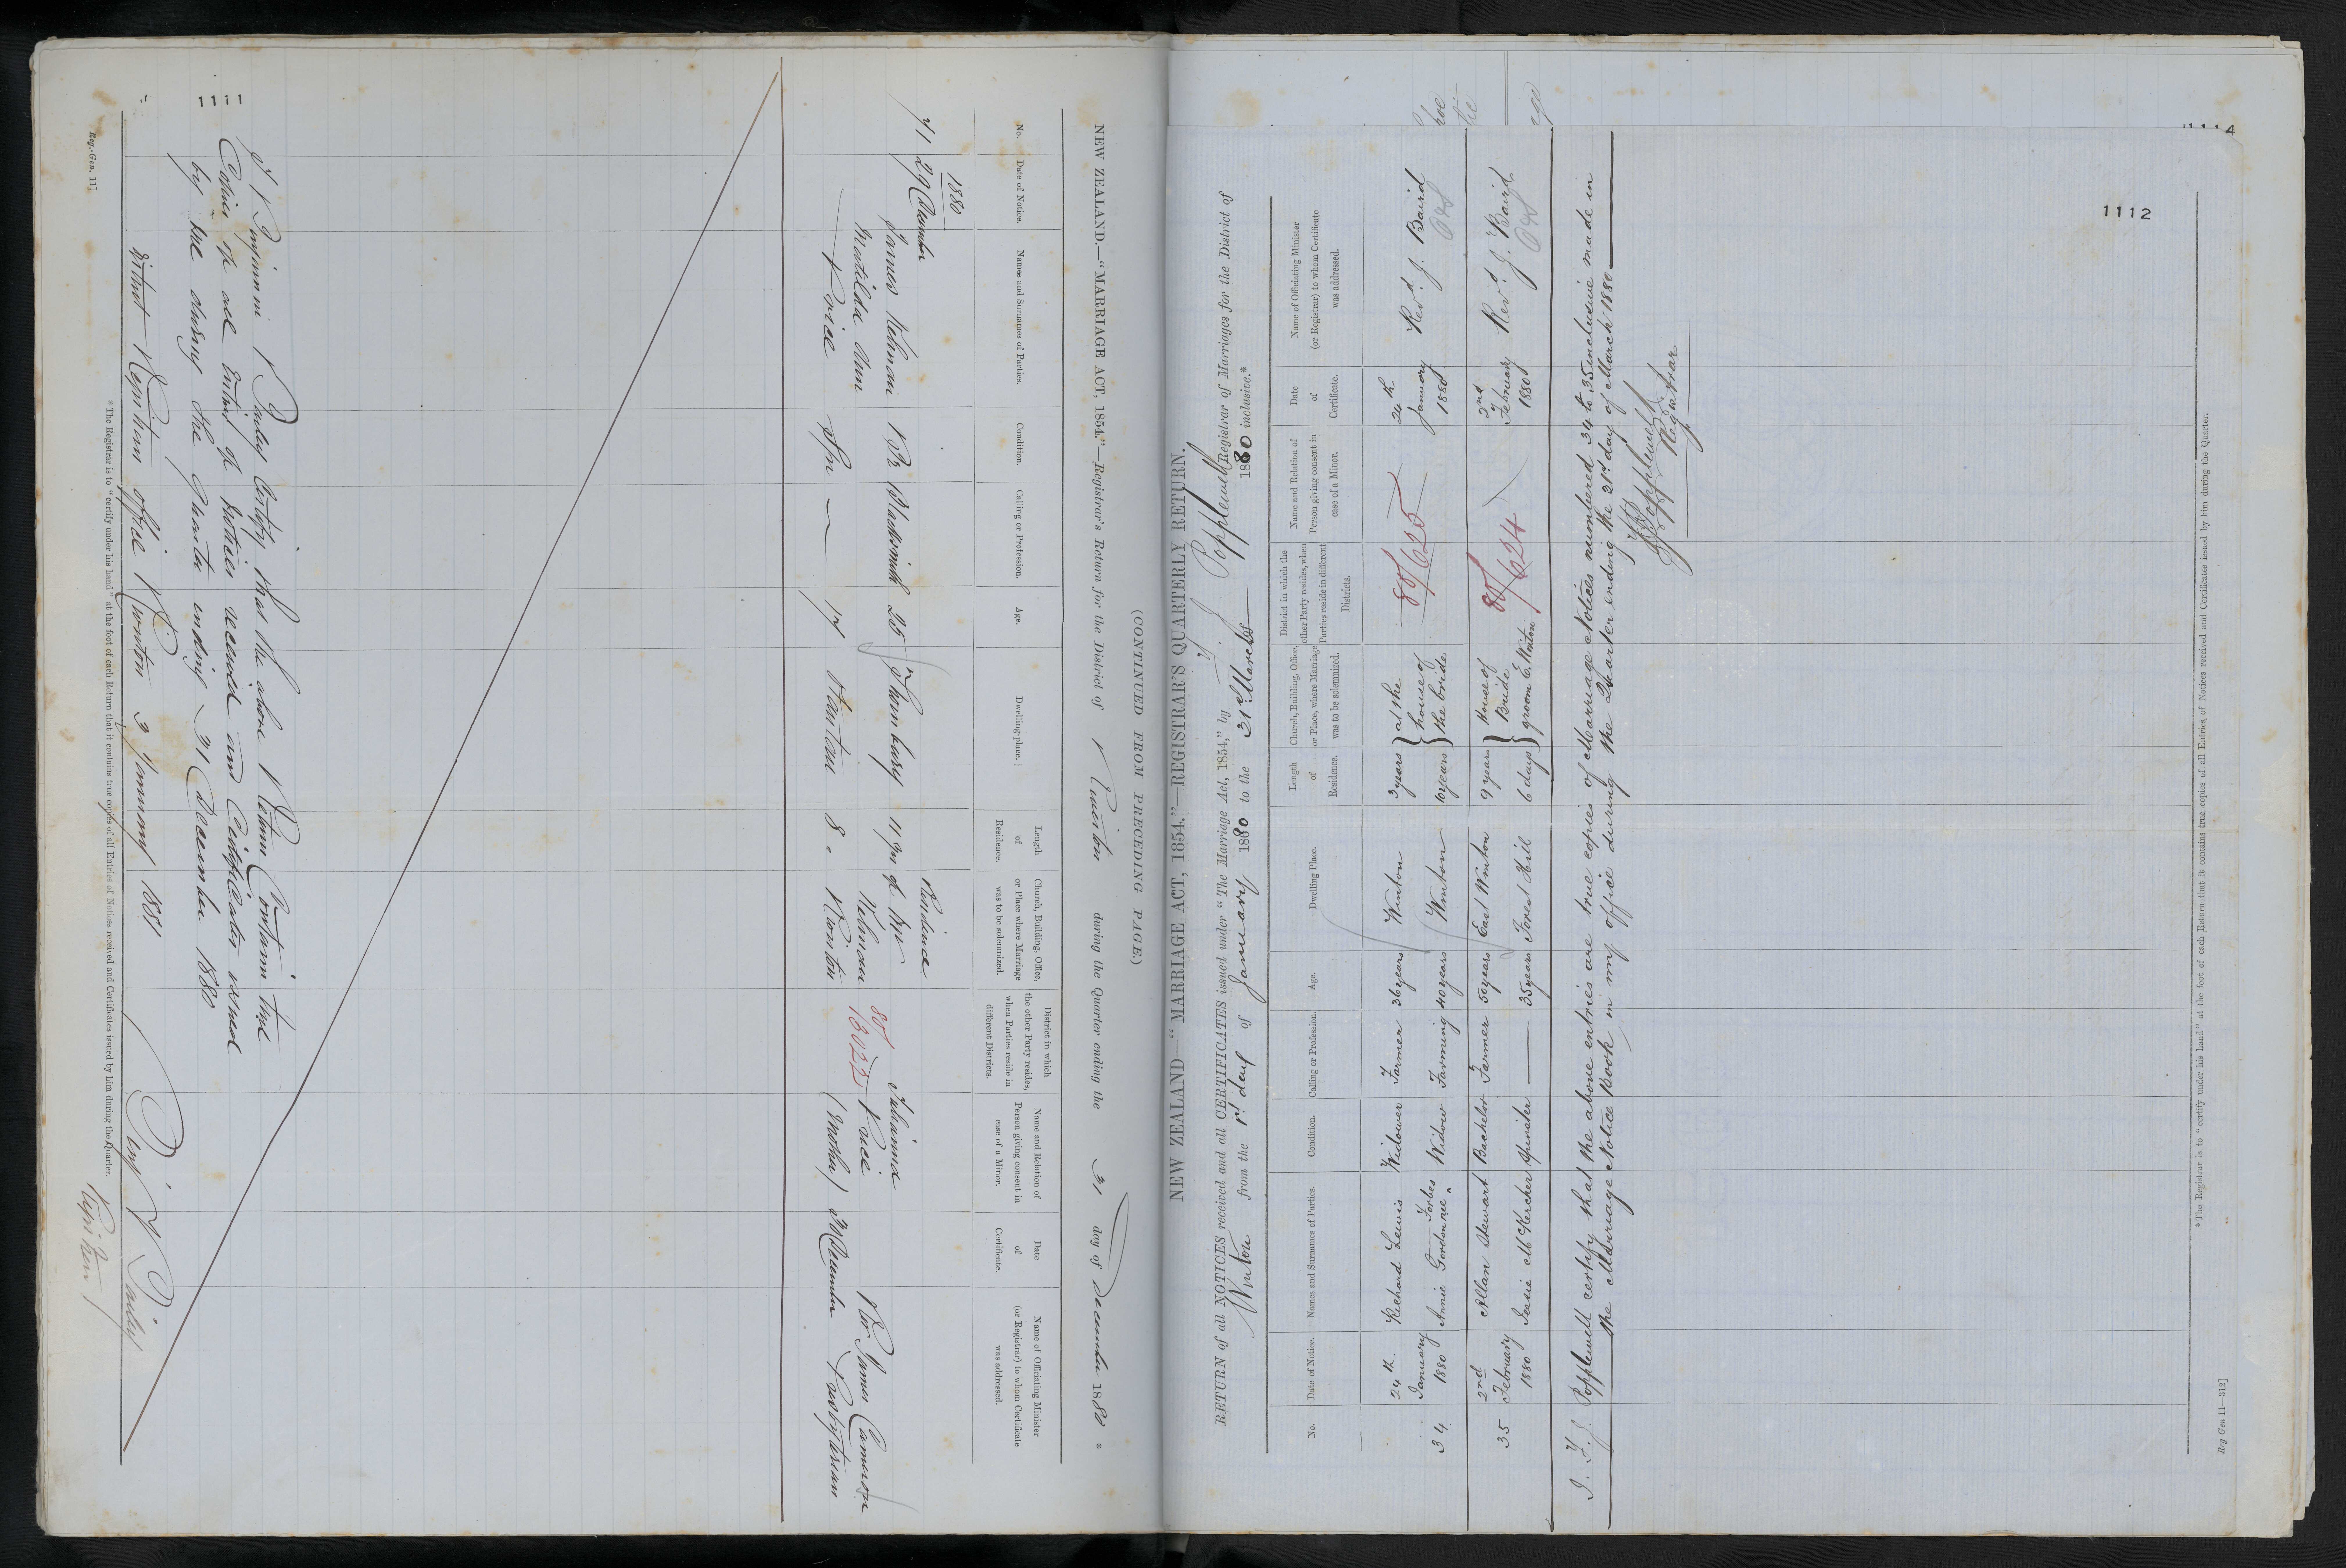 1111
(CONTINUED FROM PRECEDING PAGE.)
NEW ZEALAND.—"MARRIAGE ACT, 1854."—Registrar's Return for the District of during the Quarter ending the 31 day of December 1880 *
No.
Date of Notice.
Names and Surnames of Parties.
Condition.
Calling or Profession.
Age.
Dwelling-place.
Length of Residence.
Church, Building, Office, or Place where Marriage was to be solemnized.
District in which the other Party resides, when Parties reside in different Districts.
Name and Relation of Person giving consent in case of a Minor.
Date of Certificate.
Name of Officiating Minister (or Registrar) to whom Certificate was addressed.
1880
71 29 December
James Br Blacksmith 25 Thornbury 11 yrs
Matilda Ann Price Sp — 17 8
Residence of Mr
80/ 13023
Price (Mother)
Rev James Cameron Presbyterian
I Benjamin Bailey Certify that the above Return Contains true
Copies of all Entries of Notices received and Certificates issued
by me during the Quarter ending 31 December 1880
District Registrars office 3 January 1881
Benj Bailey
Registrar
* The Registrar is to "certify under his hand" at the foot of each Return that it contains true copies of all Entries of Notices received and Certificates issued by him during the Quarter.
Reg.-Gen. 11]
1114
1112
NEW ZEALAND—"MARRIAGE ACT, 1854."—REGISTRAR'S QUARTERLY RETURN.
RETURN of all NOTICES received and all CERTIFICATES issued under "The Marriage Act, 1854," by J. Popplewell Registrar of Marriages for the District of
Winton from the 1st day of January 1880 to the 31st March 1880 inclusive.*
No.
Date of Notice.
Names and Surnames of Parties.
Condition.
Calling or Profession.
Age.
Dwelling Place.
Length of Residence.
Church, Building, Office, or Place, where Marriage was to be solemnized.
District in which the other Party resides, when Parties reside in different Districts.
Name and Relation of Person giving consent in case of a Minor.
Date of Certificate.
Name of Officiating Minister (or Registrar) to whom Certificate was addressed.
34 24th January 1880
Richard Lewis Widower Farmer 36 years Winton 3 years
Annie Gordon nee Forbes Widow Farming 40 years Winton 10 years
at the house of the bride
80/625
January 1880
Revd. J. Baird
35 2nd February 1880
Allan Stewart Bachelor Farmer 50 years East Winton 9 years
Jessie McKercher Spinster — 35 years Forest Hill 6 days
House of Bride groom E. Winton
80/624
2nd February 1880
Revd. J. Baird
I. F. J. Popplewell certify that the above entries are true copies of Marriage Notices numbered 34 to 35 inclusive made in
the Marriage Notice Book in my office during the Quarter ending the 31st day of March 1880
Popplewell
Registrar
* The Registrar is to "certify under his hand" at the foot of each Return that it contains true copies of all Entries, of Notices received and Certificates issued by him during the Quarter.
Reg Gen 11—312]